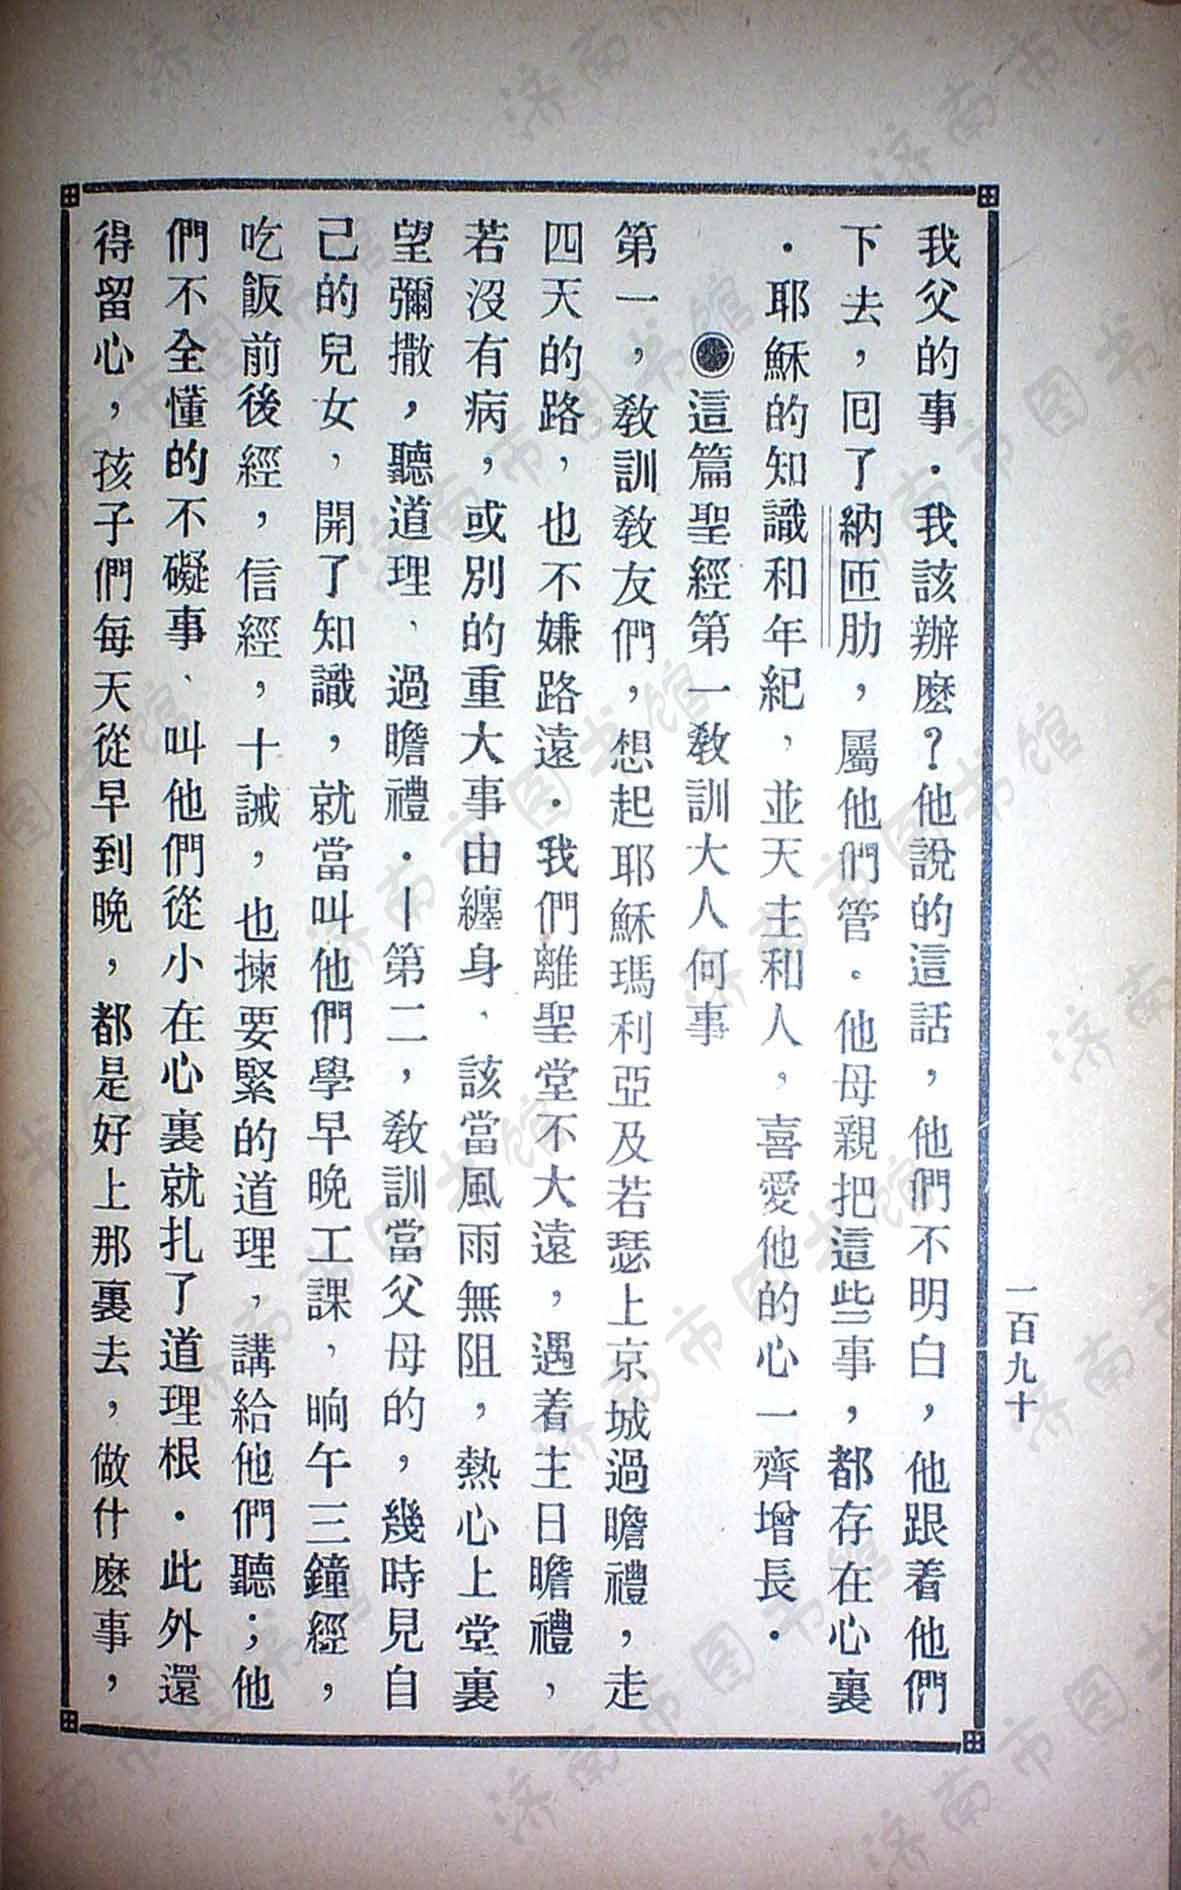 我父的事．我該辦麽？他說的這話，他們不明白，他跟着他們
下去，囘了納匝肋，屬他們管．他母親把這些事，都存在心裏
．耶穌的知識和年紀，並天主和人，喜愛他的心一齊增長．
◉這篇聖經第一教訓大人何事
第一，教訓教友們，想起耶穌瑪利亞及若瑟上京城過瞻禮，走
四天的路，也不嫌路遠．我們離聖堂不大遠，遇着主日瞻禮，
若沒有病，或別的重大事由纏身、該當風雨無阻，熱心上堂裏
望彌撒，聽道理、過瞻禮．—第二，教訓當父母的，幾時見自
己的兒女，開了知識，就當叫他們學早晚工課，晌午三鐘經，
吃飯前後經，信經，十誡，也揀要緊的道理，講給他們聽；他
們不全懂的不礙事、叫他們從小在心裏就扎了道理根．此外還
得留心，孩子們每天從早到晚，都是好上那裏去，做什麽事，
一百九十
济南市图书馆